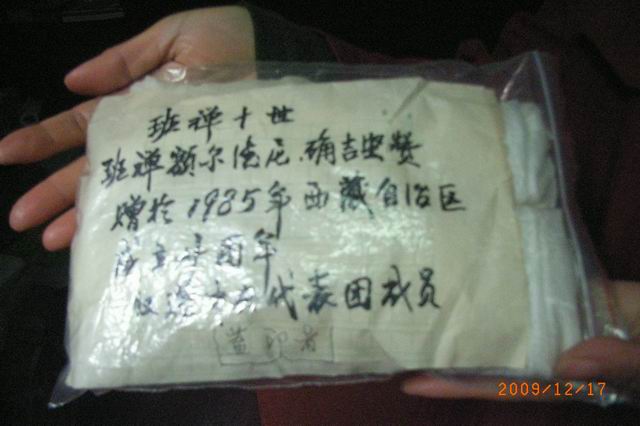 班禅十世
班禅额尔德尼.确吉坚赞
赠于1985年西藏自治区
成立 周年
代表团成员
盖印者
2009/12/17